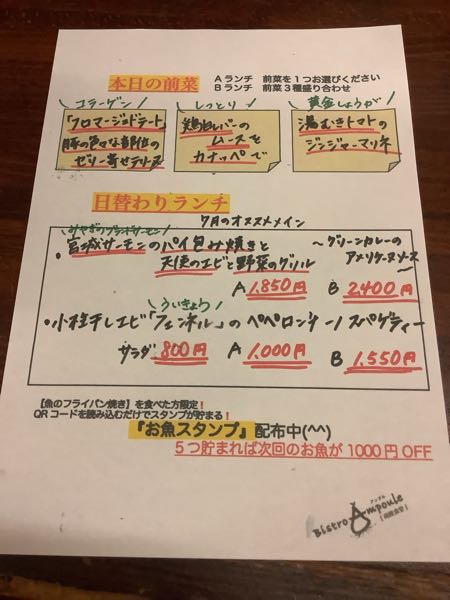 本日の前菜
Aランチ 前菜を1つお選びください
Bランチ 前菜3種盛り合わせ
コラーゲン
「フロマージュドテート」
豚の色々な部位の
ゼリー寄せテリーヌ
しっとり
鶏白レバーの
ムースを
カナッペで
黄金しょうが
湯むきトマトの
ジンジャーマリネ
日替わりランチ
7月のオススメメイン
みやぎのブランドサーモン
・宮城サーモンのパイ包み焼きと
天使のエビと野菜のグリル
〜グリーンカレーの
アメリケーヌソース〜
A 1,850円 B 2,400円
ういきょう
・小柱干しエビ「フェンネル」のペペロンチーノスパゲティー
サラダ 800円 A 1,000円 B 1,550円
【魚のフライパン焼き】を食べた方限定!
QRコードを読み込むだけでスタンプが貯まる!
『お魚スタンプ』配布中(^^)
5つ貯まれば次回のお魚が1000円OFF
アンプル
Bistro Ampoule